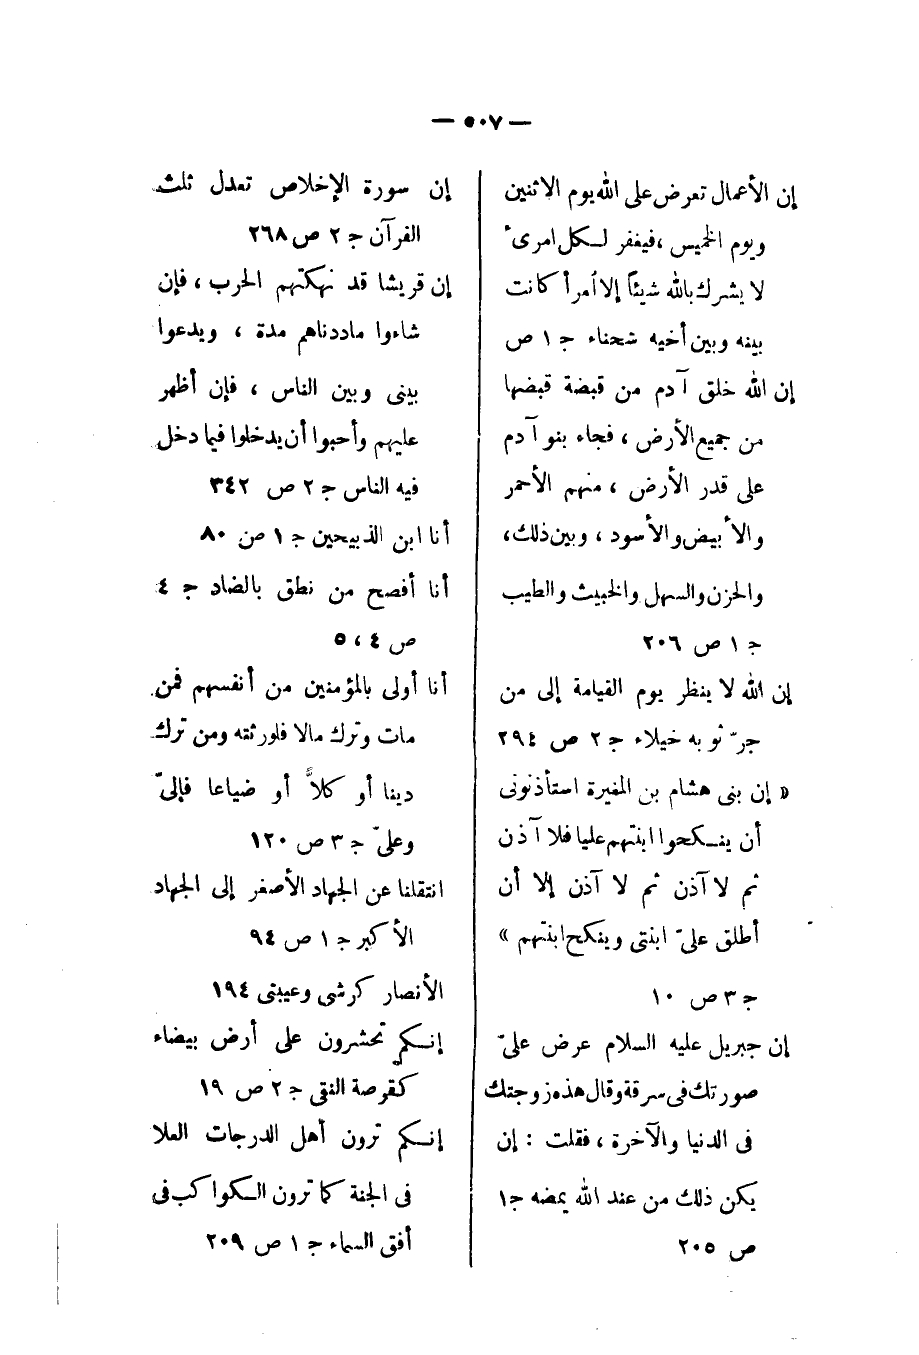 — ٥٠٧ —
إن الأعمال تعرض على الله يوم الاثنين
ويوم الخميس ، فيغفر لكل امرىء
لا يشرك بالله شيئاً إلا أمرأ كانت
بينه وبين أخيه شحناء ج ١ ص
إن الله خلق آدم من قبضة قبضها
من جميع الأرض ، فجاء بنو آدم
على قدر الأرض ، منهم الأحمر
والأبيض والأسود ، وبين ذلك ،
والحزن والسهل والخبيث والطيب
ج ١ ص ٢٠٦
إن الله لا ينظر يوم القيامة إلى من
جرّ ثوبه خيلاء ج ٢ ص ٢٩٤
« إن بنى هشام بن المغيرة استأذنونى
أن ينكحوا ابنتهم عليا فلا آذن
ثم لا آذن ثم لا آذن إلا أن
أطلق علىّ ابنتى وينكح ابنتهم »
ج ٣ ص ١٠
إن جبريل عليه السلام عرض علىّ
صورتك فى سرقة وقال هذه زوجتك
فى الدنيا والآخرة ، فقلت : إن
يكن ذلك من عند الله يمضه ج ١
ص ٢٠٥
إن سورة الإخلاص تعدل ثلث
القرآن ج ٢ ص ٢٦٨
إن قريشا قد نهكتهم الحرب ، فإن
شاءوا ماددناهم مدة ، ويدعوا
بينى وبين الناس ، فإن أظهر
عليهم وأحبوا أن يدخلوا فيما دخل
فيه الناس ج ٢ ص ٣٤٢
أنا ابن الذبيحين ج ١ ص ٨٠
أنا أفصح من نطق بالضاد ج ٤
ص ٤ ، ٥
أنا أولى بالمؤمنين من أنفسهم فمن
مات وترك مالا فلورثته ومن ترك
دينا أو كلاًّ أو ضياعا فإلىّ
وعلىّ ج ٣ ص ١٢٠
انتقلنا عن الجهاد الأصغر إلى الجهاد
الأكبر ج ١ ص ٩٤
الأنصار كرشى وعيبتى ١٩٤
إنكم تحشرون على أرض بيضاء
كقرصة النقى ج ٢ ص ١٩
إنكم ترون أهل الدرجات العلا
فى الجنة كما ترون الكواكب فى
أفق السماء ج ١ ص ٢٠٩